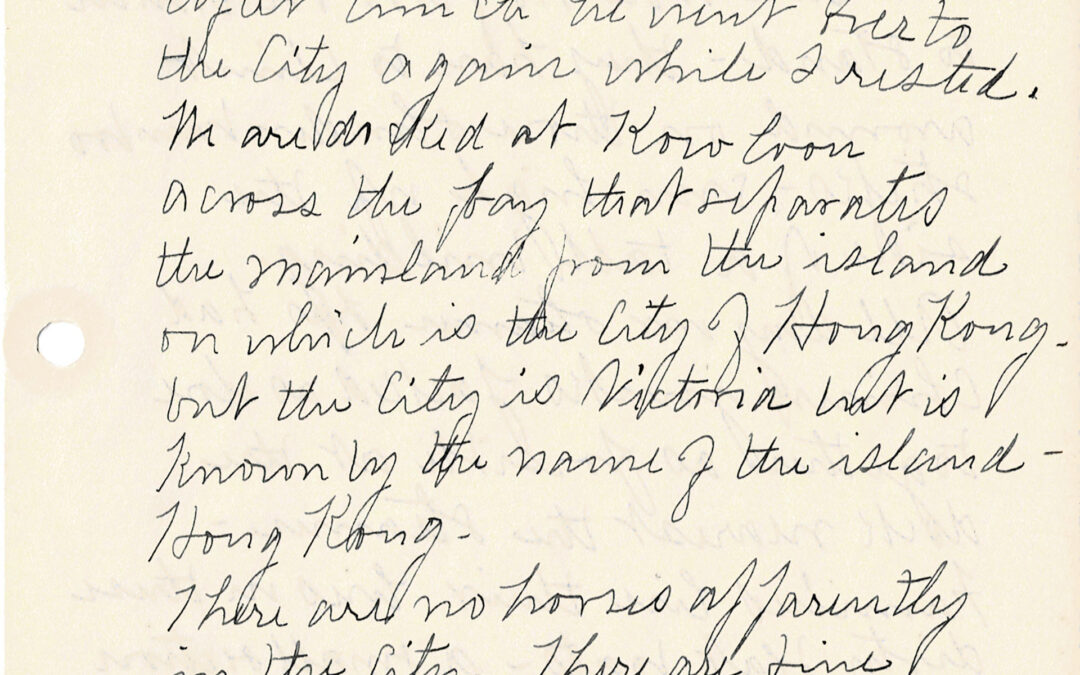 lunch he went over to
the City again while I rested.
We are docked at Kow loon
across the bay that separates
the mainland from the island
on which is the City of Hong Kong-
but the City is Victoria but is
known by the name of the island-
Hong Kong-
There are no horses apparently
in the City. There are fine